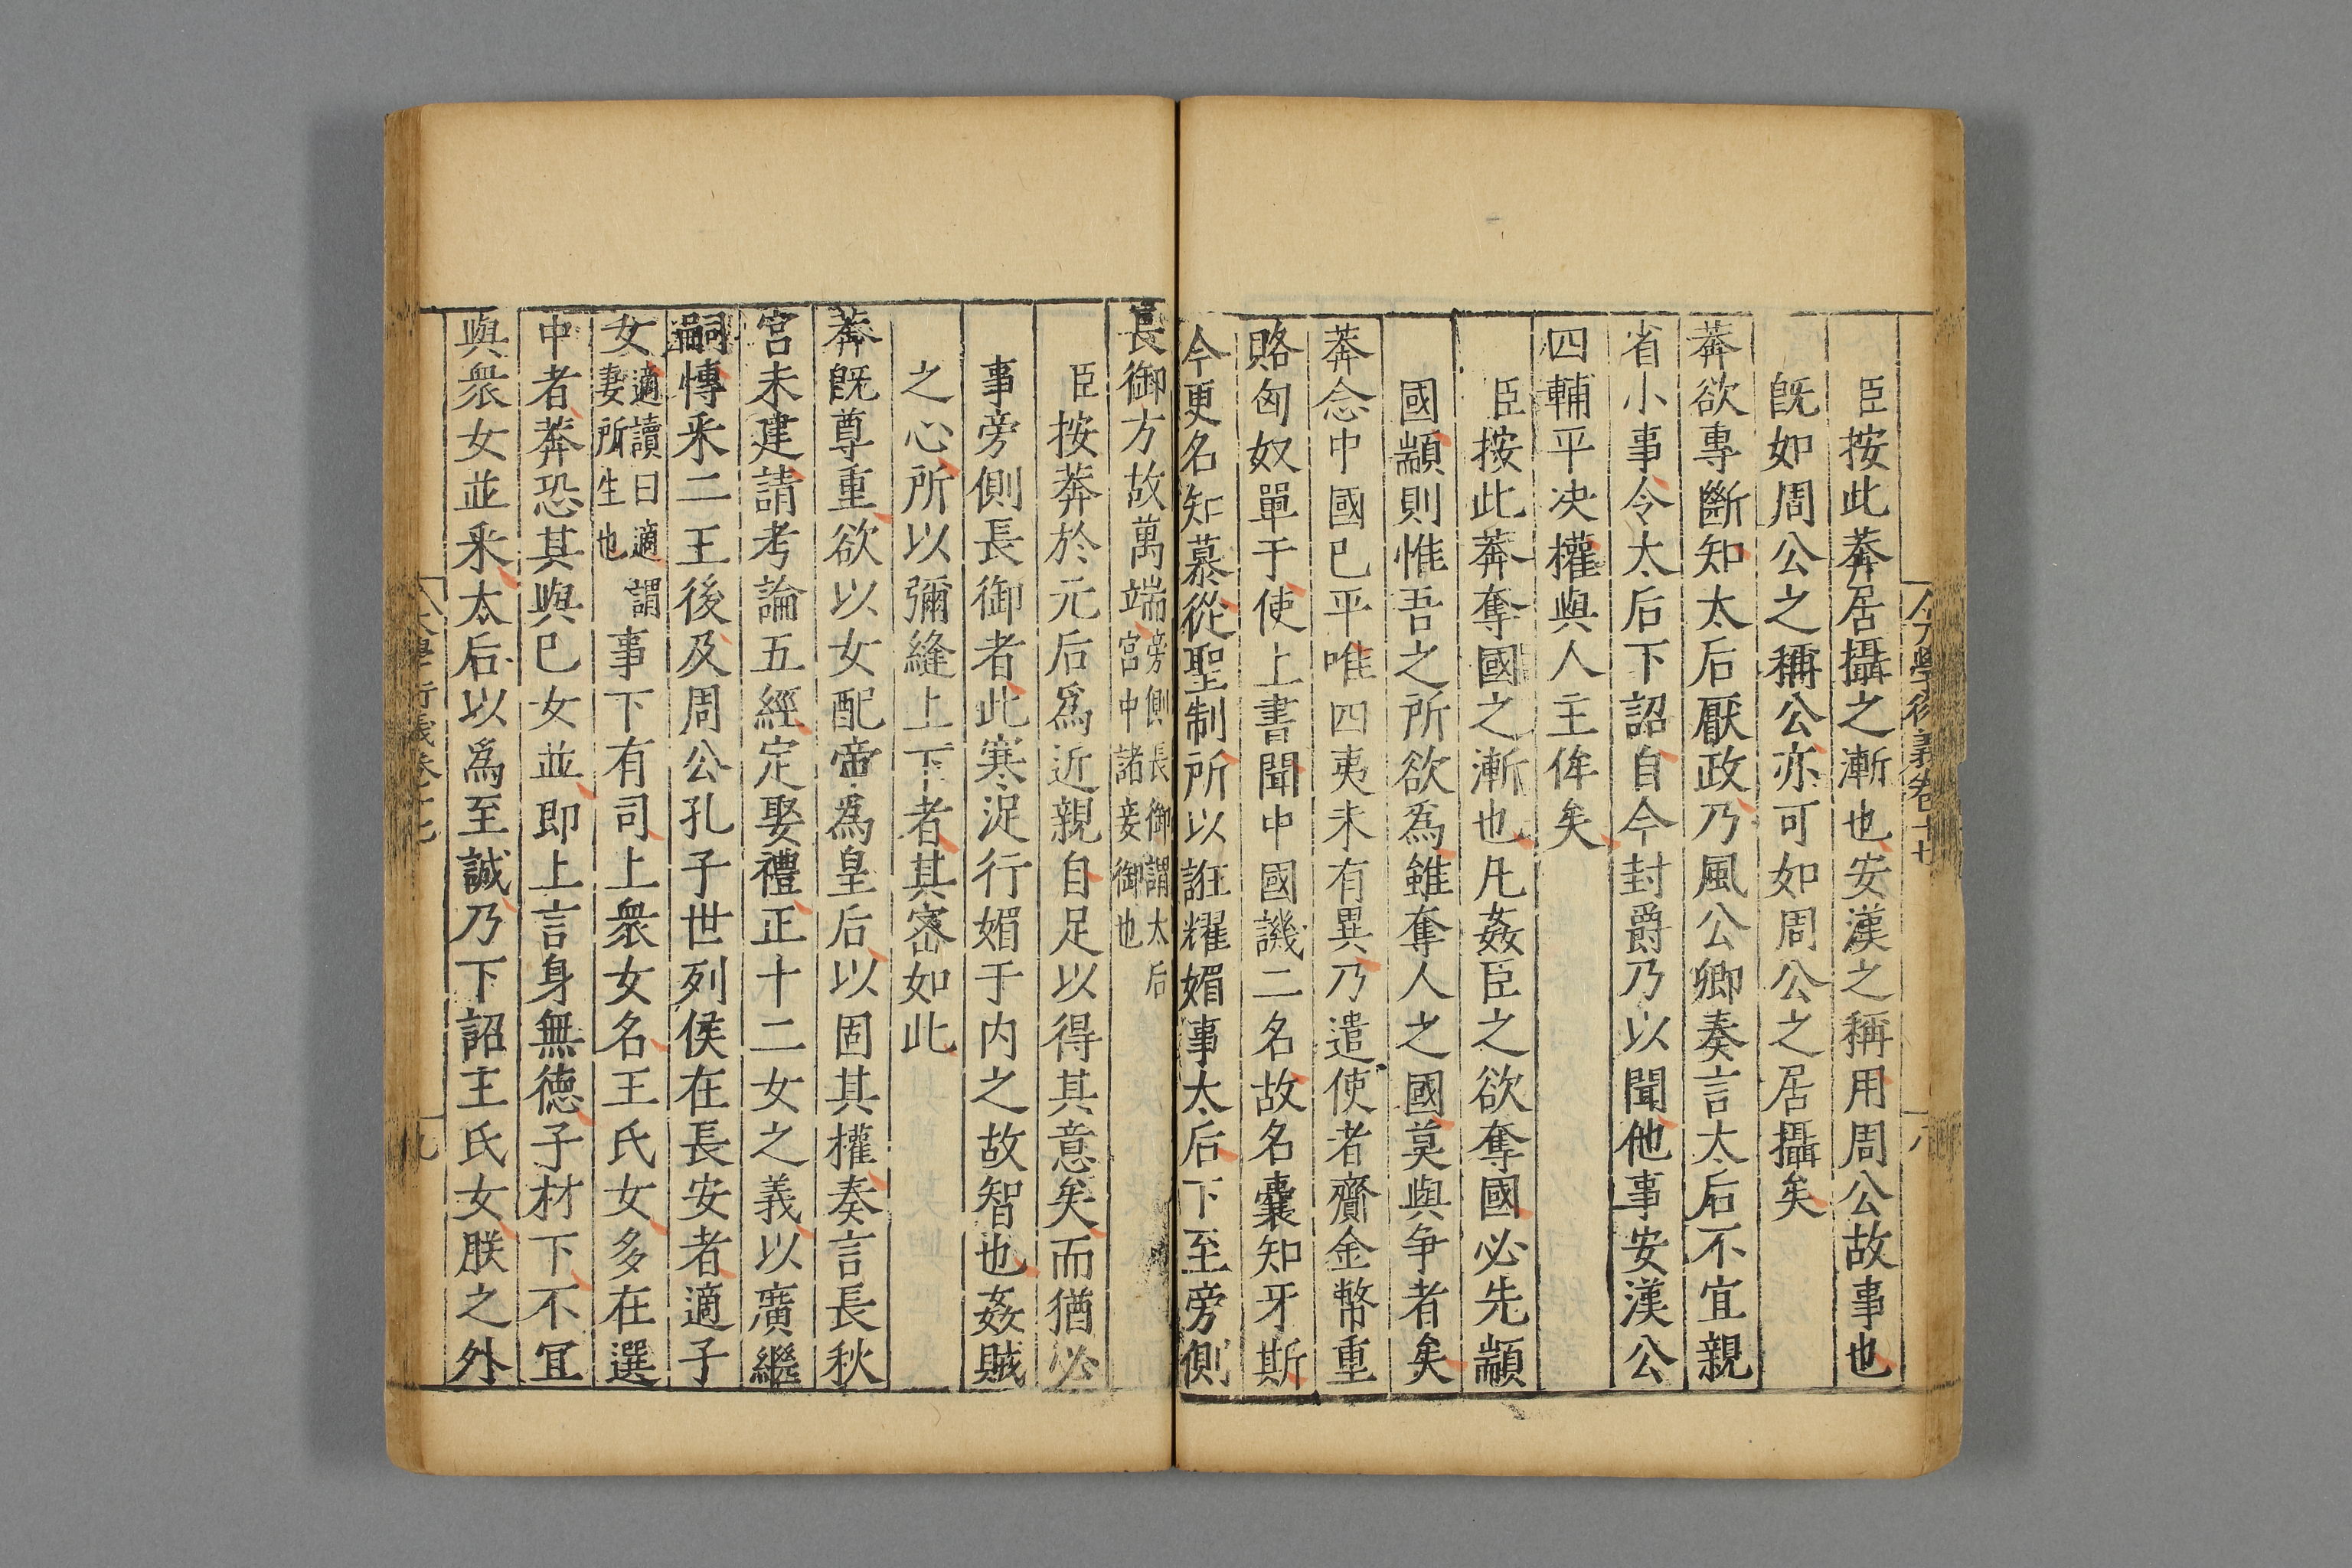 臣按此莽居攝之漸也安漢之稱用周公故事也
既如周公之稱公亦可如周公之居攝矣
莽欲專斷知太后厭政乃風公卿奏言太后不宜親
省小事令太后下詔自今封爵乃以聞他事安漢公
四輔平决權與人主侔矣
臣按此莽奪國之漸也凡姦臣之欲奪國必先顓
國顓則惟吾之所欲爲雖奪人之國莫與争者矣
莽念中國已平唯四夷未有異乃遣使者齎金幣重
賂匈奴單于使上書聞中國譏二名故名囊知牙斯
今更名知慕從聖制所以誑耀媚事太后下至旁側
長御方故萬端旁側長御謂太后宮中諸妾御也
臣按莽於元后爲近親自足以得其意矣而猶必
事旁側長御者此寒浞行媚于内之故智也姦賊
之心所以彌縫上下者其宻如此
莽既尊重欲以女配帝爲皇后以固其權奏言長秋
宮未建請考論五經定娶禮正十二女之義以廣繼
嗣愽釆二王後及周公孔子世列侯在長安者適子
女適讀曰適謂妻所生也事下有司上衆女名王氏女多在選
中者莽恐其與已女並即上言身無德子材下不宜
與衆女並釆太后以爲至誠乃下詔王氏女朕之外
大學衍義卷十七
九